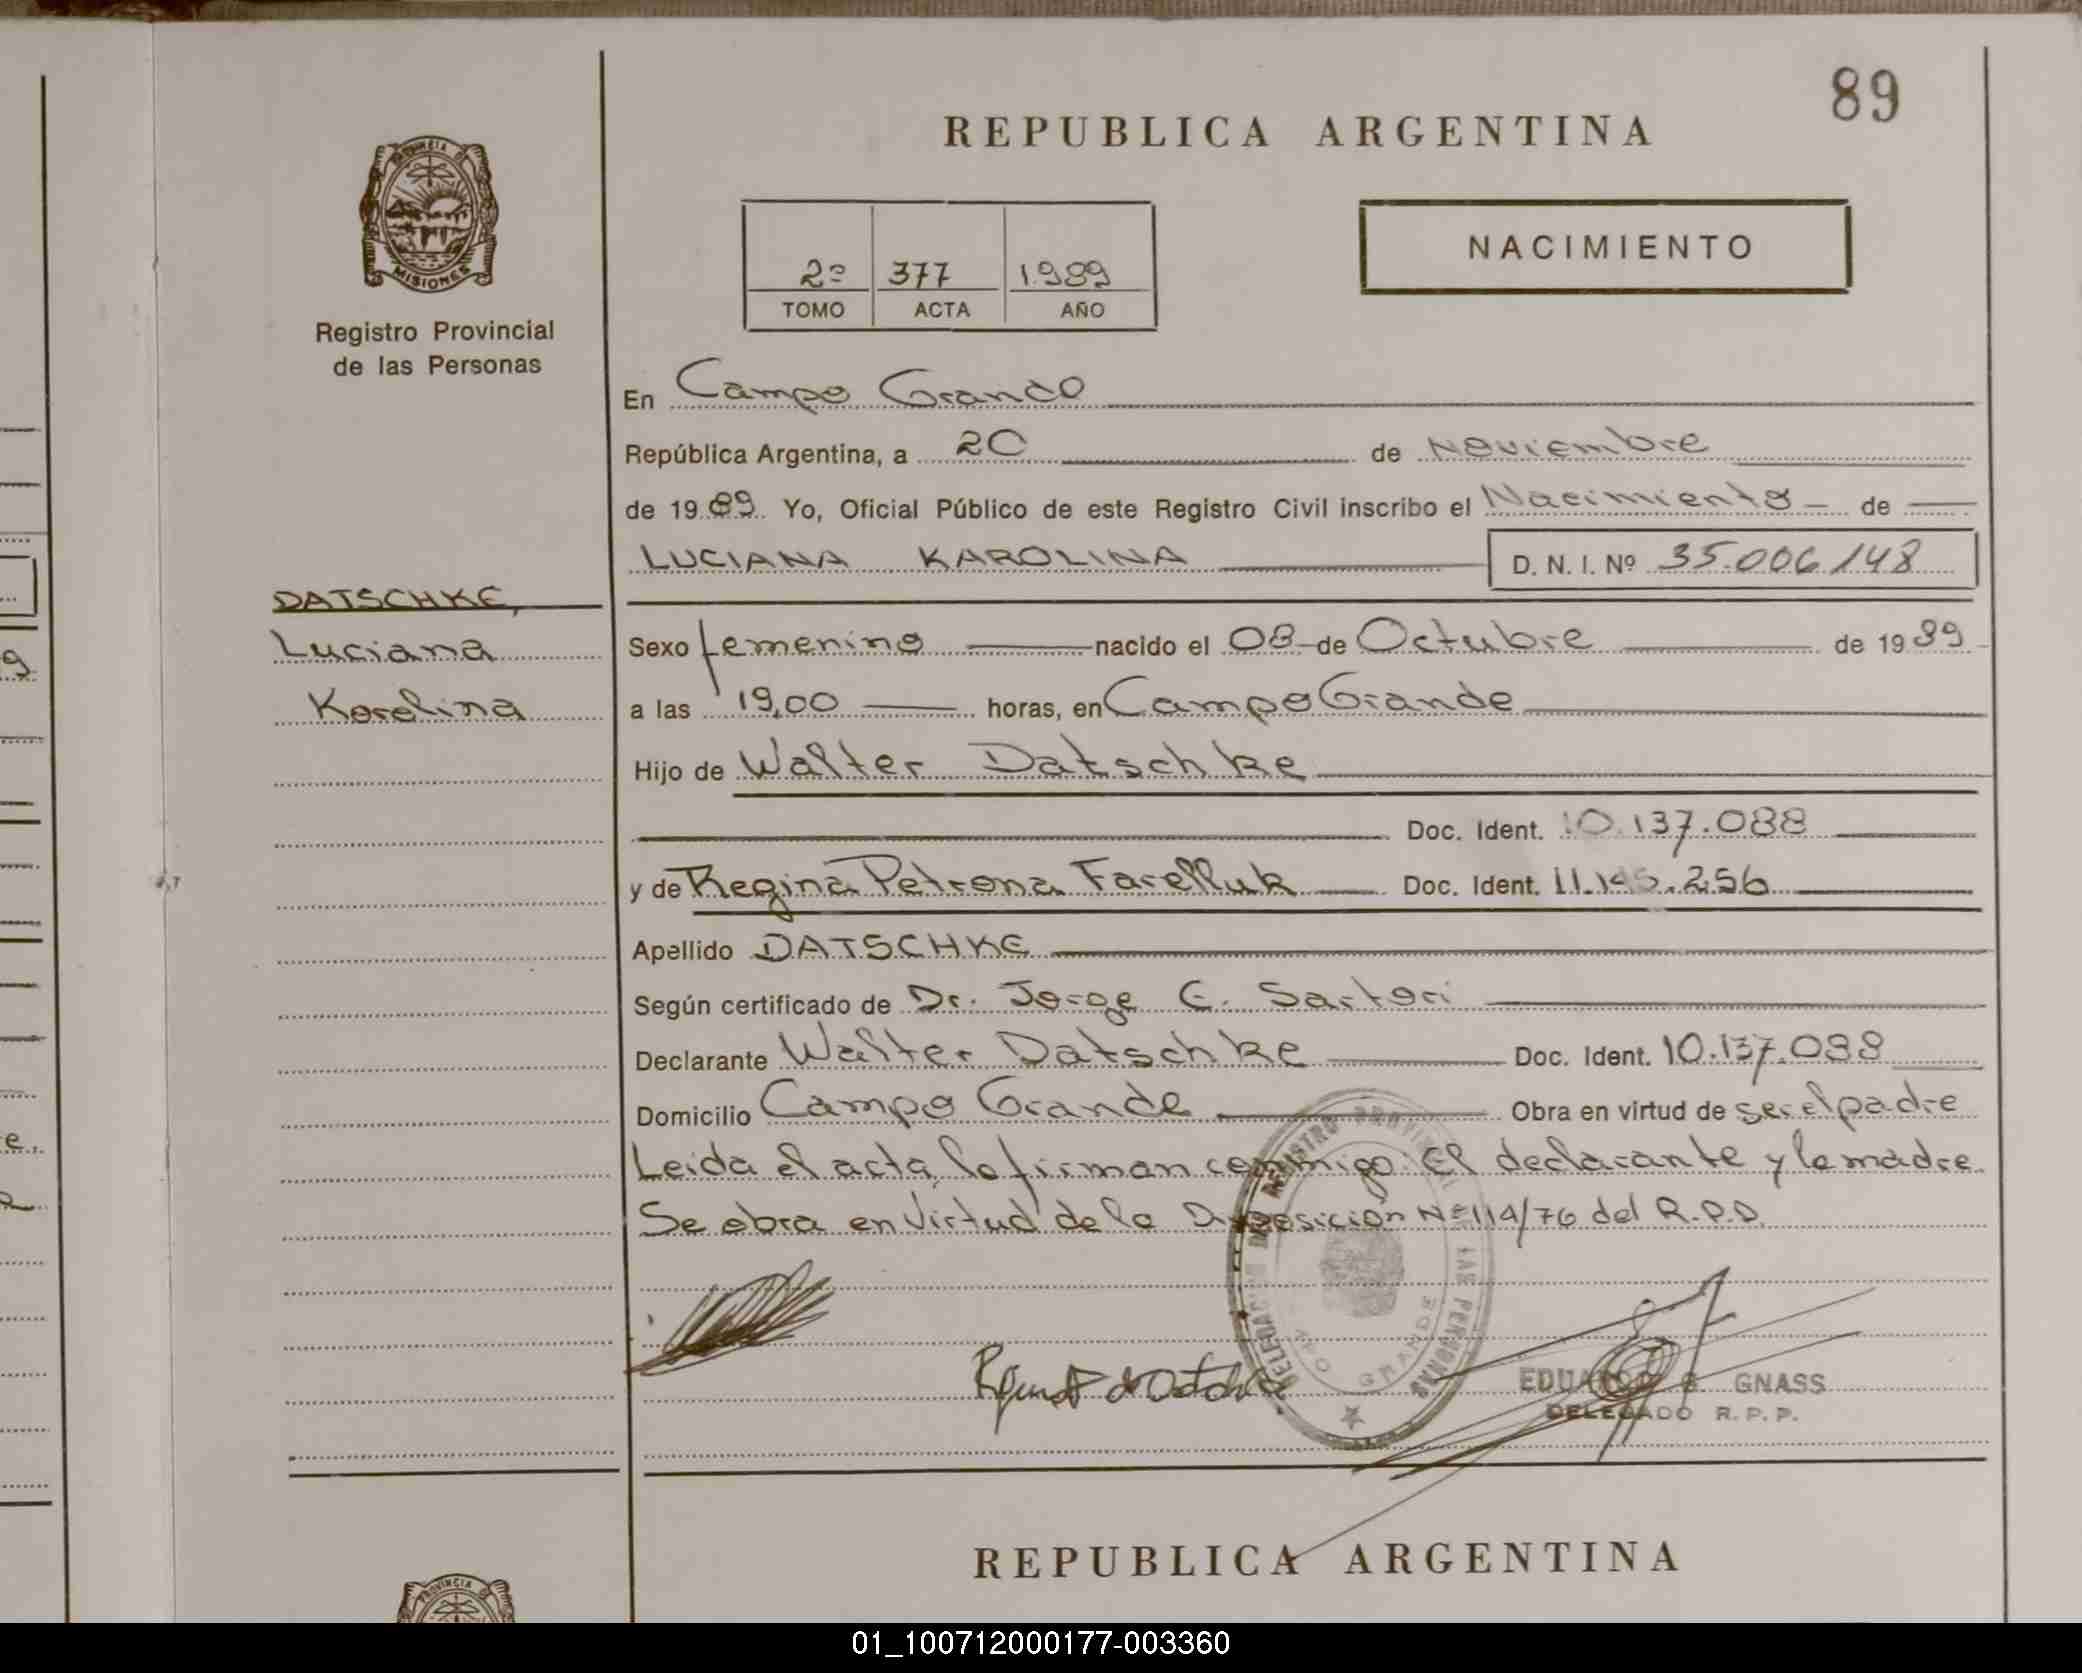 89
REPUBLICA ARGENTINA
PROVINCIA DE
MISIONES
Registro Provincial
de las Personas
2º 377 1.989
TOMO ACTA AÑO
NACIMIENTO
En Campo Grande
República Argentina, a 20 de Noviembre
de 1989 Yo, Oficial Público de este Registro Civil inscribo el Nacimiento de
LUCIANA KAROLINA D. N. I. Nº 35.006.148
DATSCHKE,
Luciana
Karolina
Sexo femenino nacido el 08 de Octubre de 1989
a las 19,00 horas, en Campo Grande
Hijo de Walter Datschke
Doc. Ident. 10.137.088
y de Regina Petrona Farelluk Doc. Ident. 11.145.256
Apellido DATSCHKE
Según certificado de Dr. Jorge E. Sartori
Declarante Walter Datschke Doc. Ident. 10.137.088
Domicilio Campo Grande Obra en virtud de ser el padre
Leida el acta, la firman conmigo. El declarante y la madre.
Se obra en Virtud de la Disposición Nº 114/76 del R.P.P.
DELEGACION DEL REGISTRO PROVINCIAL DE LAS PERSONAS
GRANDE
EDUARDO GNASS
DELEGADO R.P.P.
REPUBLICA ARGENTINA
PROVINCIA DE
01_100712000177-003360